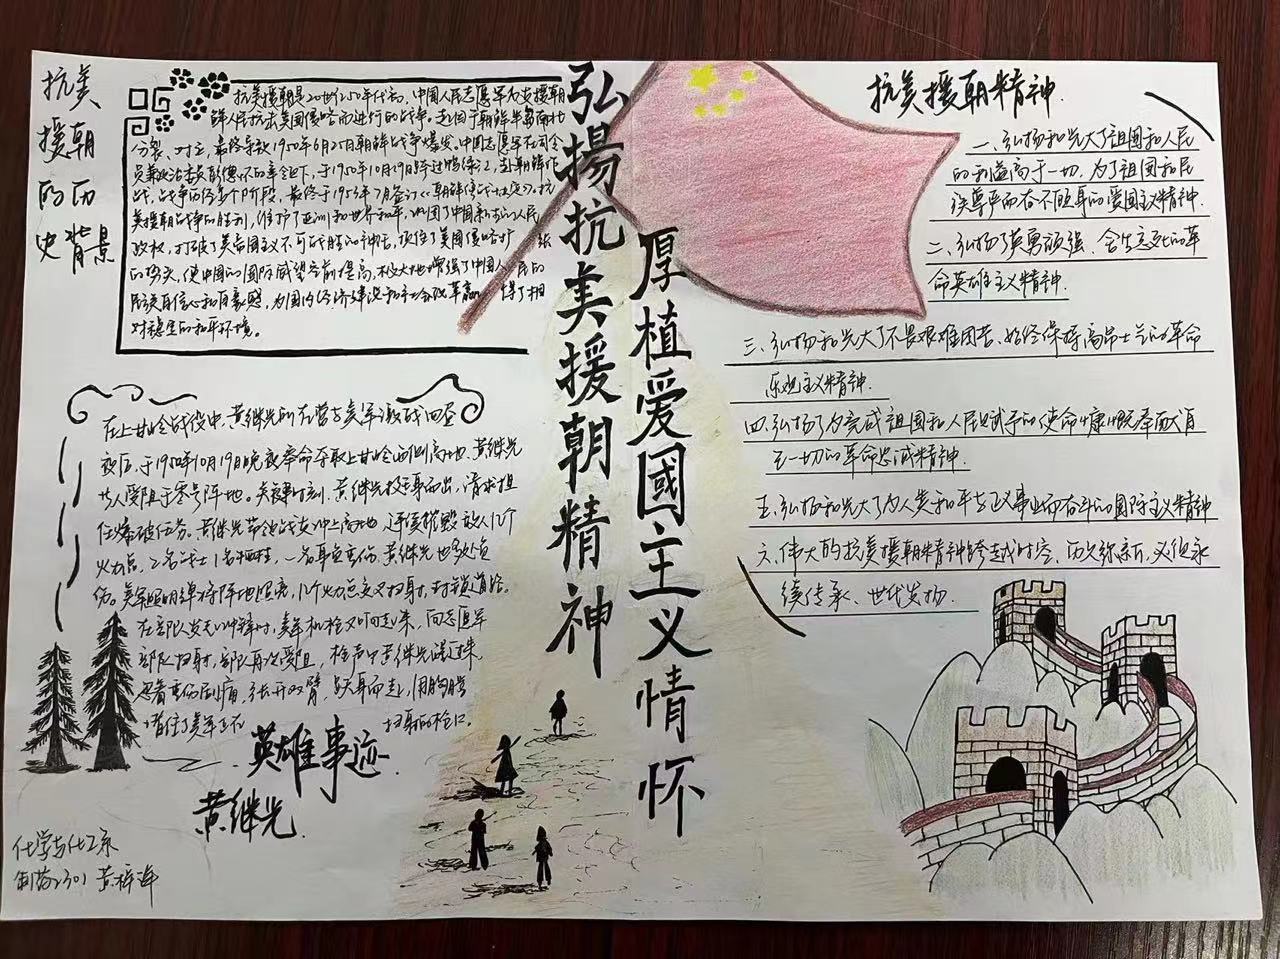 抗美
援朝
的历
史背景
抗美援朝是20世纪50年代初,中国人民志愿军为支援朝
鲜人民抗击美国侵略而进行的战争。起因于朝鲜半岛南北
分裂、对立,最终导致1950年6月25日朝鲜战争爆发。中国志愿军在司令
员兼政治委员彭德怀的率领下,于1950年10月19日跨过鸭绿江,赴朝鲜作
战,战争历经多个阶段,最终于1953年7月签订《朝鲜停战协定》。抗
美援朝战争的胜利,维护了亚洲和世界和平,巩固了中国新生的人民
政权,打破了美帝国主义不可战胜的神话,扼住了美国侵略扩张
的势头,使中国的国际威望空前提高,极大地增强了中国人民的
民族自信心和自豪感,为国内经济建设和社会改革赢得了相
对稳定的和平环境。
弘揚抗美援朝精神
厚植爱國主义情怀
抗美援朝精神
一、弘扬和光大了祖国和人民
的利益高于一切,为了祖国和民
族尊严而奋不顾身的爱国主义精神.
二、弘扬了英勇顽强、舍生忘死的革
命英雄主义精神.
三、弘扬和光大了不畏艰难困苦、始终保持高昂士气的革命
乐观主义精神.
四.弘扬了为完成祖国和人民赋予的使命慷慨奉献自
己一切的革命忠诚精神.
五.弘扬和光大了为人类和平与正义事业而奋斗的国际主义精神
六.伟大的抗美援朝精神跨越时空、历久弥新,必须永
续传承、世代发扬.
在上甘岭战役中,黄继光所在营与美军激战四昼
夜后,于1950年10月19日晚夜奉命夺取上甘岭西侧高地.黄继光
等人受阻于零号阵地。关键时刻,黄继光挺身而出,请求担
任爆破任务。黄继光带领战友冲上高地,连续摧毁敌人几个
火力点,2名战士1名牺牲,一名身负重伤,黄继光也多处负
伤。美军照明弹将阵地照亮,几个火力点交叉扫射,封锁道路.
在部队发起冲锋时,美军机枪又响起来,向志愿军
部队扫射,部队再次受阻,枪声中黄继光醒过来,
忍着重伤剧痛,张开双臂,跃身而起,用胸膛
堵住了美军正在扫射的枪口.
英雄事迹.
黄继光.
化学与化工系
制药2301 黄梓